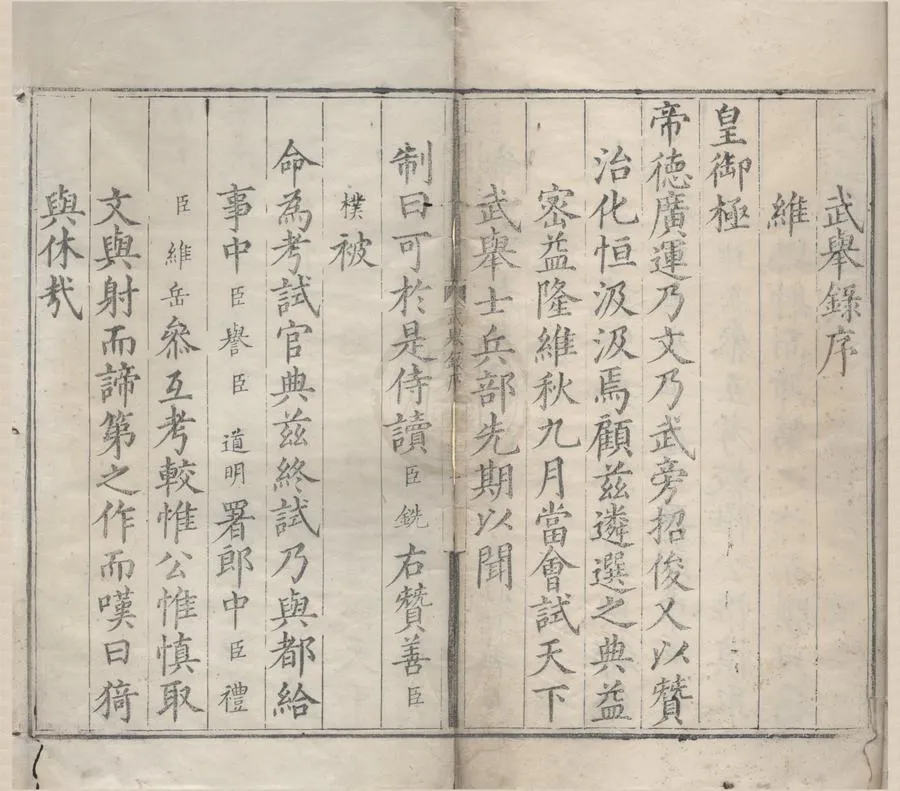 武舉錄序
維
皇御極
帝德廣運乃文乃武旁招俊乂以贊
治化恒汲汲焉顧茲遴選之典益
宻益隆維秋九月當會試天下
武舉士兵部先期以聞
武舉錄序
制曰可於是侍讀臣銑右贊善臣
樸被
命為考試官典茲終試乃與都給
事中臣譽臣道明署郎中臣禮
臣維岳叅互考較惟公惟慎取
文與射而諦第之作而嘆曰猗
與休㢤